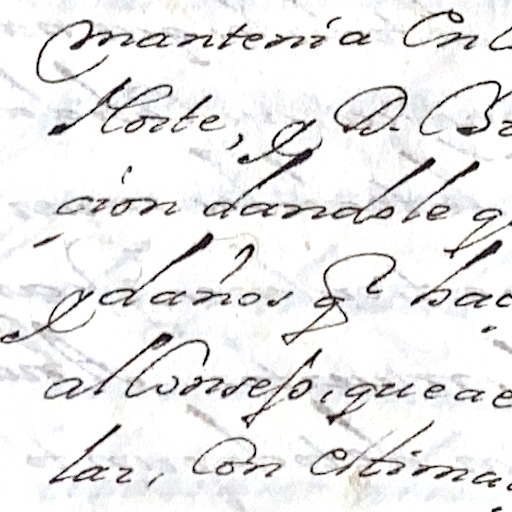 mantenia En l
Norte, y D. Br
cion dandole q
y daños q.e hac
al Consejo, que ae
lar, Con estima